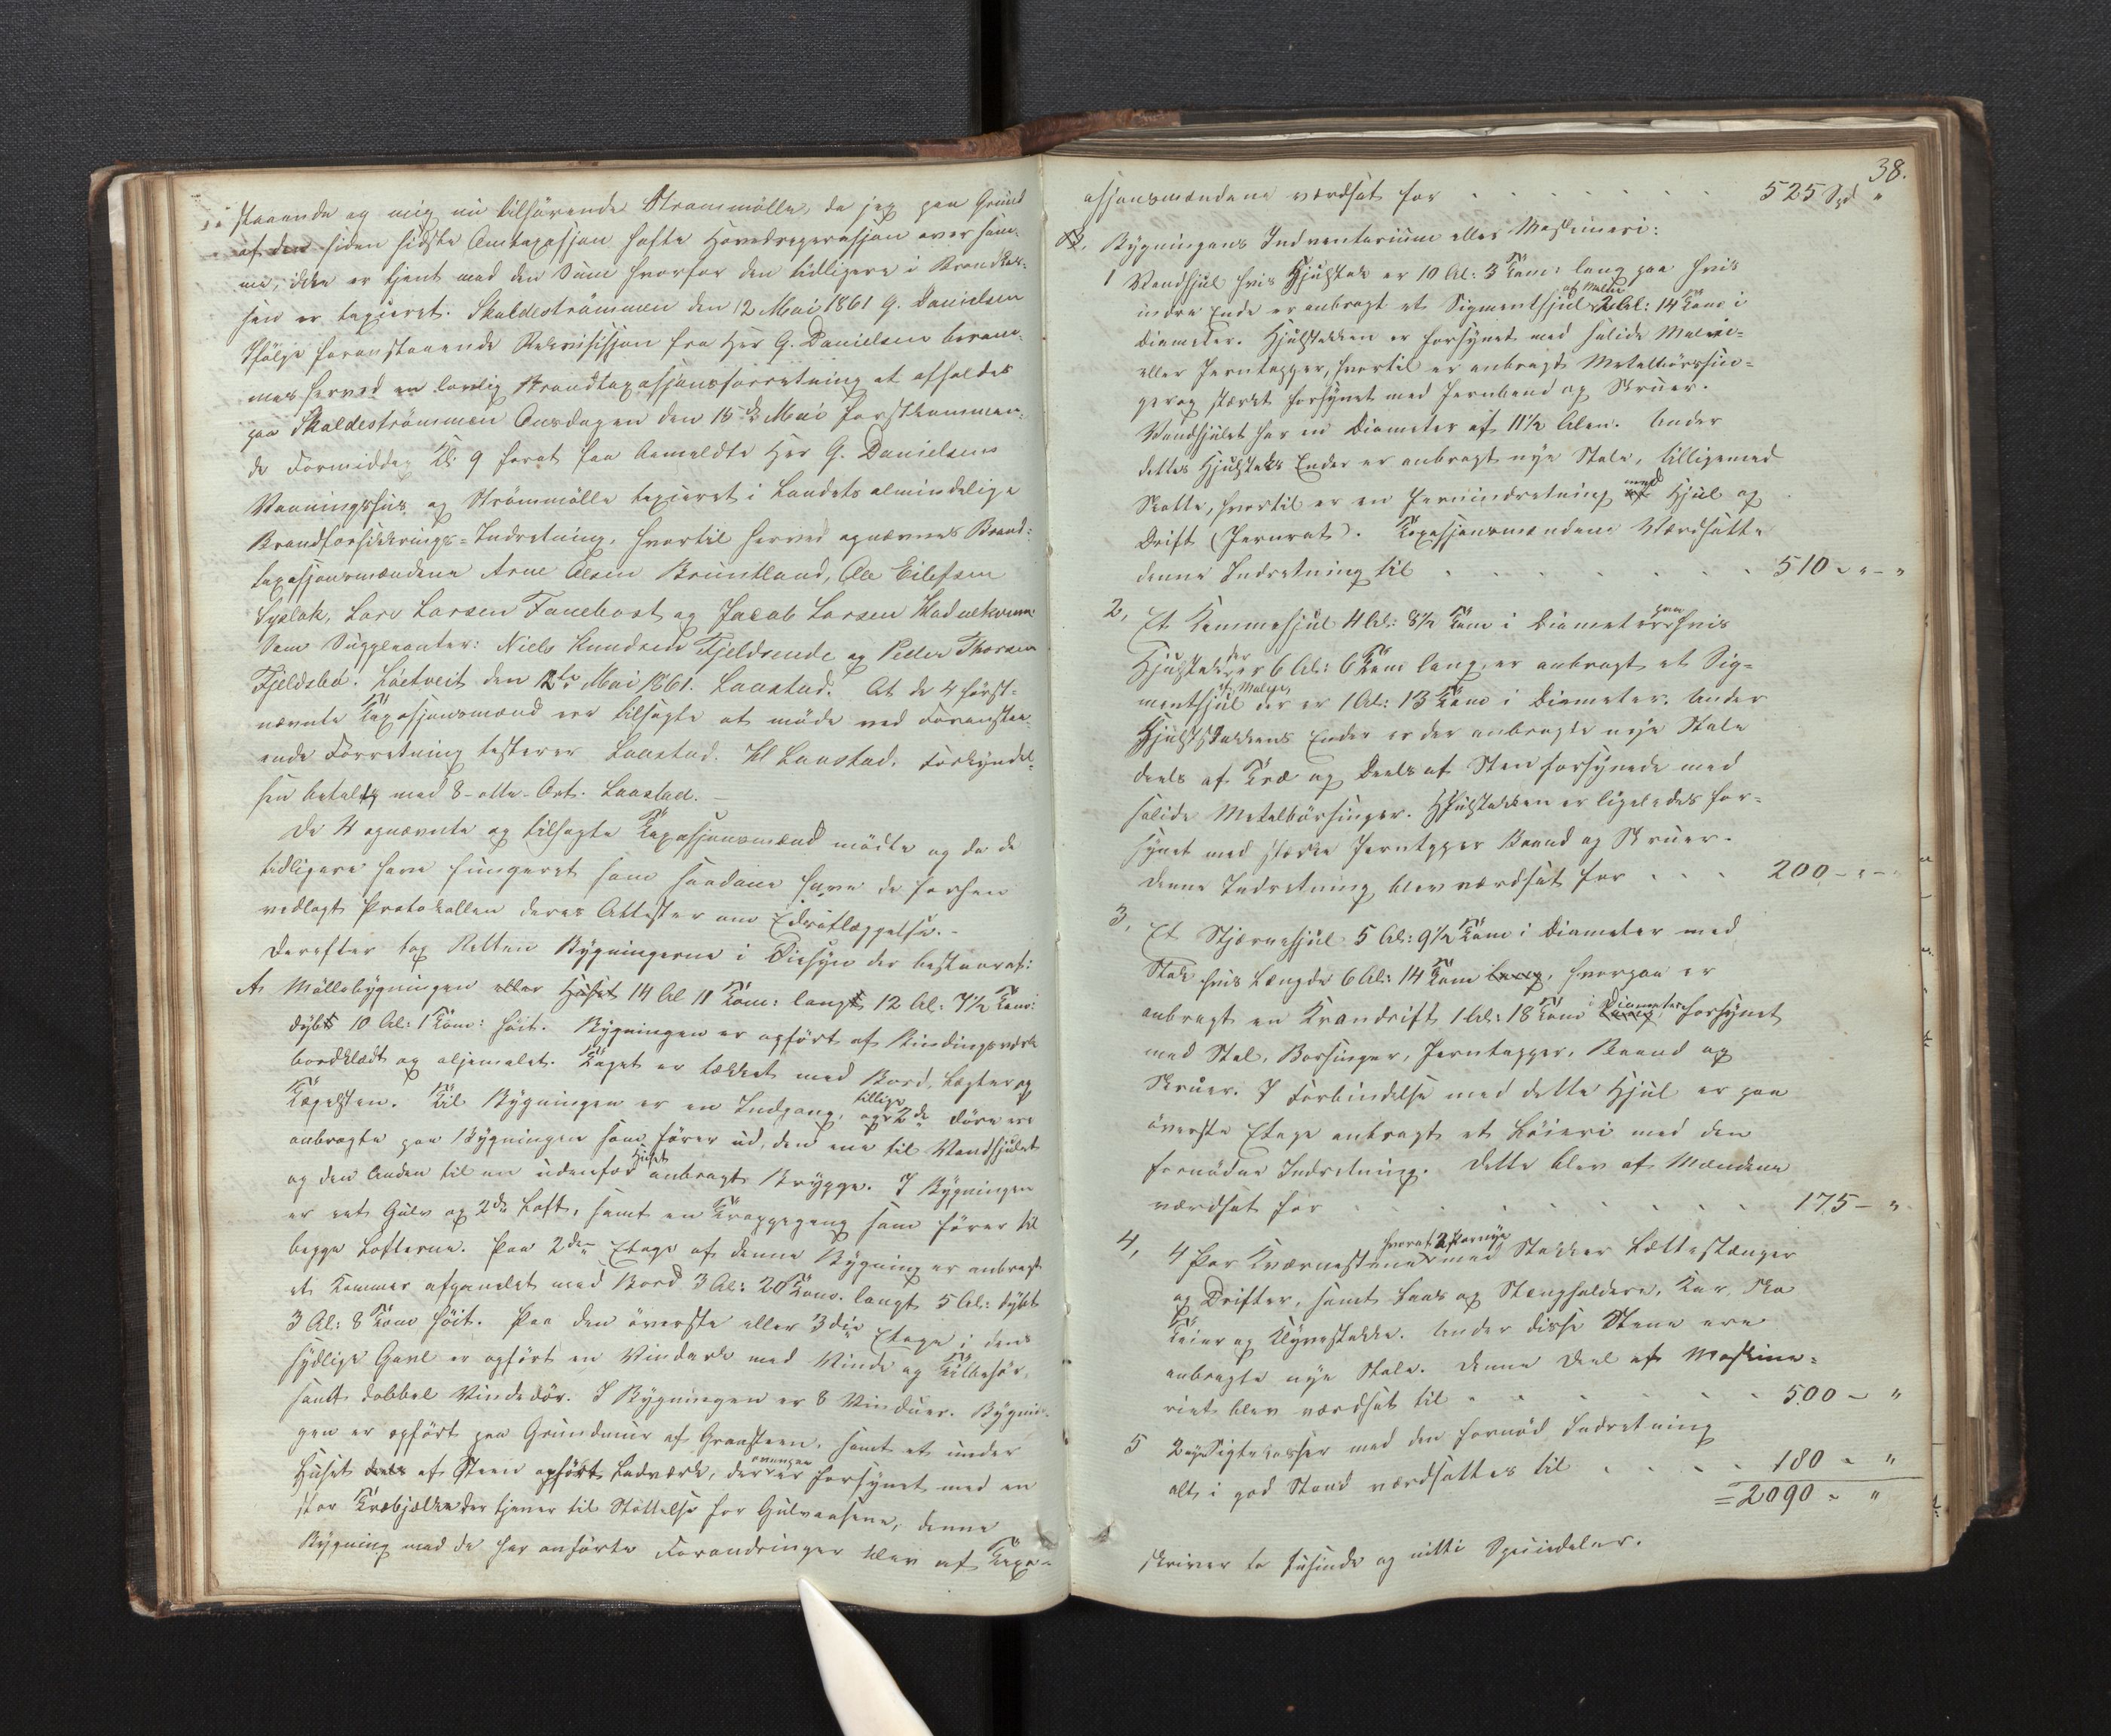 staaende og mig nu tilhörende Strömmölle, da jeg paa Grund
af den siden sidste Omtaxasjon hafte Hovedreperasjon over sam-
me, ikke er tjent med den Sum hvorfor den tidligere i Brandkas-
sen er taxeret. Skaldeströmmen den 12 Mai 1861 G. Danielsen
Ifölge foranstaaende Rekvisisjon fra Her G. Danielsen beram-
mes herved en lovlig Brandtaxasjonsforretning at afholdes
paa Skaldeströmmen Onsdagen den 15de Mai förstkommen-
de Formiddag Kl. 9 forat faa anmeldte Her G. Danielsens
Vaaningshus og Strömmölle taxeret i Landets almindelige
Brandforsikkrings-Indretning, hvortil herved opnævnes Brand-
taxasjonsmændene Arne Olsen Bruntland, Ole Eilefsen
Syslak, Lars Larsen Fanebost og Jacob Larsen Hadnekvam
Som Suppleanter: Niels Knudsen Fjeldsende og Peder Thorsen
Fjeldsbö. Löetveit den 12te Mai 1861. Laastad. At de 4 först-
nævnte Taxasjonsmænd ere tilsagte at möde ved Foranstaa-
ende Forretning testerer Laastad. Kl Laastad. Forkyndel-
sen betalt med 8 - otte - Ort. Laastad. -
De 4 opnævnte og tilsagte Taxasjonsmænd mödte og da de
tidligere have fungeret som saadane have de forhen
vedlagt Protokollen deres Attester om Edsaflæggelse. -
Derefter tog Retten Bygningerne i Öiesyn der bestaaraf:
A Möllebygningen eller Huset 14 Al 11 Tom: langt 12 Al: 7½ Tom:
dybt 10 Al: 1 Tom: höit. Bygningen er opfört af Bindingsverk
bordklædt og oljemalet. Taget er tækket med Bord, Lægter og
Tægelsten. Til Bygningen er en Indgang, og tillige 2de Döre ere
anbragte paa Bygningen som förer ud, den ene til Vandhjulet
og den Anden til en udenfor Huset anbragt Brygge. I Bygningen
er eet Gulv og 2de Loft, samt en Trappegang som förer til
begge Lofterne. Paa 2den Etage af denne Bygning er anbragt
et Kammer afpanelet med Bord 3 Al: 20 Tom. langt 5 Al: dybt
3 Al: 8 Tom höit. Paa den överste eller 3die Etage i dens
sydlige Gavl er opfört en Vindark med Vinde og Tilbehör,
samt dobbel Vindedör. I Bygningen er 8 Vinduer. Bygnin-
gen er opfört paa Grundmur af Graasteen, samt et under
Huset af Steen opfört Ladværk, der ovenpaa er forsynet med en
stor Træbjælke der tjener til Stöttelse for Gulvaasene, denne
Bygning med de her anförte Forandringer blev af Taxa-
38.
asjonsmændene værdsat for . . . . . . . 525 Spd "
B. Bygningens Indventarium eller Maskineri:
1 Vandhjul hvis Hjulstok er 10 Al: 3 Tom: lang paa hvis
indre Ende er anbragt et Sigmenthjul 2 Al: 14 Tom i
Diameter. Hjulstokken er forsynet med solide
eller Jerntapper, hvortil er anbragt Metalbörssin-
ger og stærkt forsynet med Jernbaand og Skruer.
Vandhjulet har en Diameter af 11½ Alen. Under
dettes Hjulstoks Ender er anbragt nye Stole, tilligemed
Skotte, hvortil er en Jernindretning med Hjul og
Drift (Jernrat). Taxasjonsmændene Værdsatte
denne Indretning til . . . . . . . 510 - " - "
2, Et Kammehjul 4 Al: 8½ Tom i Diameter paa hvis
Hjulstok der er 6 Al: 6 Tom lang, er anbragt et Sig-
menthjul der er 1 Al: 13 Tom i Diameter. Under
Hjulstokkens Ender er der anbragte nye Stole
deels af Træ og Deels af Sten forsynede med
solide Metalbörsinger. Hjulstokken er ligeledes for-
synet med stærke Jerntapper Baand og Skruer.
Denne Indretning blev værdsat for . . . 200 - " - "
3, Et Stjærnehjul 5 Al: 9½ Tom i Diameter med
Stok hvis Længde 6 Al: 14 Tom, hvorpaa er
anbragt en Krondrift 1 Al: 18 Tom i Diameter forsynet
med Stol, Borsinger, Jerntapper, Baand og
Skruer. I Forbindelse med dette Hjul er paa
överste Etage anbragt et Höieri med den
fornödne Indretning. Dette blev af Mændene
værdsat for . . . . . . . 175 - "
4, 4 Par Kværnestene hvoraf 2 Par nye med Stokker Lættestænger
og Drifter, samt Laas og Stangholdere, Kar, Sko
Teiner og Klyvestokke. Under disse Stene ere
anbragte nye Stole. Denne Deel af Maskine-
riet blev værdsat til . . . . . . 500 - "
5 2 nye Sigtekasser med den fornöd. Indretning
alt i god Stand værdsattes til . . . . 180 - "
= 2090 - "
skriver to tusinde og nitti Speciedaler.